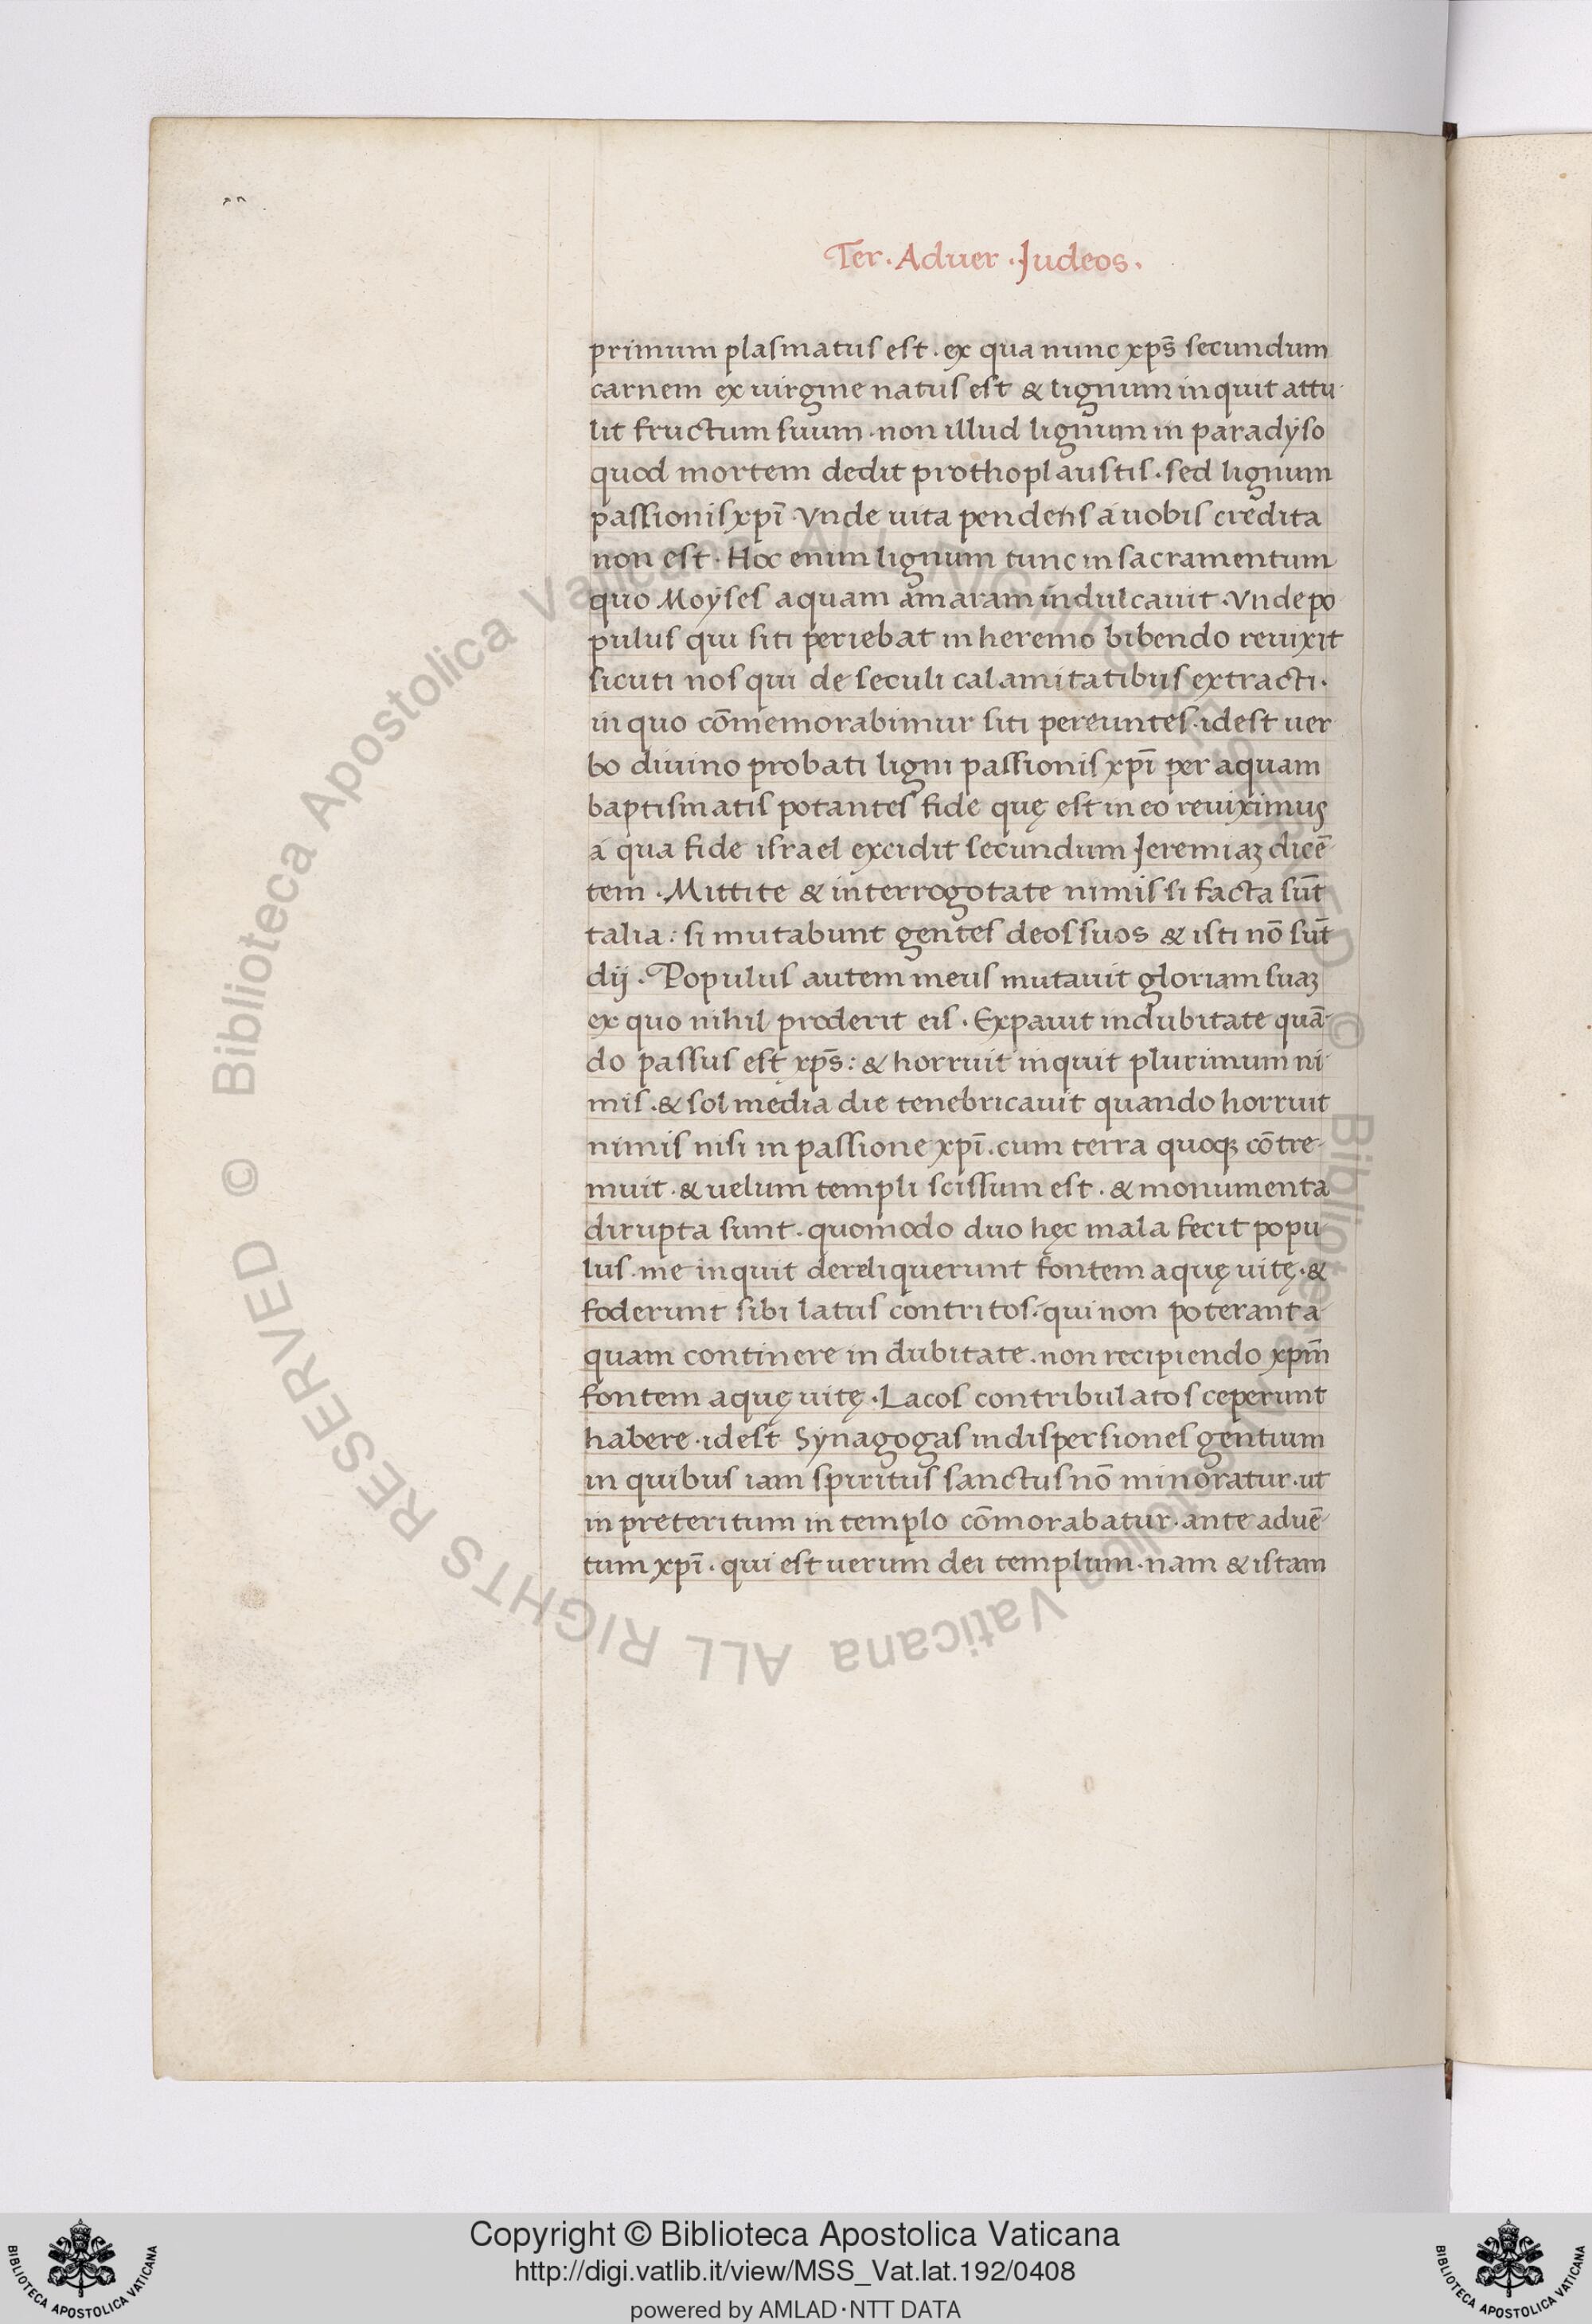 Ter. Aduer. Judeos.
primum plasmatus est. ex qua nunc xp̄s secundum
carnem ex uirgine natus est & lignum inquit attu-
lit fructum suum. non illud lignum in paradẏso
quod mortem dedit prothoplaustis. sed lignum
passionis xpī. Vnde uita pendens á uobis credita
non est. Hoc enim lignum tunc in sacramentum
quo Moẏses aquam amaram indulcauit. Vnde po
pulus qui siti periebat in heremo bibendo reuixit
sicuti nos qui de seculi calamitatibus extracti.
in quo cōmemorabimur siti pereuntes. idest uer
bo diuino probati ligni passionis xpī per aquam
baptismatis potantes fide quę est in eo reuiximus
á qua fide israel excidit secundum Jeremiaꝫ dicē-
tem. Mittite & interrogotate nimis si facta sūt
talia: si mutabunt gentes deos suos & isti nō sūt
dij. Populus autem meus mutauit gloriam suaꝫ
ex quo nihil proderit eis. Expauit indubitate quā-
do passus est xp̄s: & horruit inquit plurimum ni-
mis. & sol media die tenebricauit quando horruit
nimis nisi in passione xpī. cum terra quoqꝫ cōtre-
muit. & uelum templi scissum est. & monumenta
dirupta sunt. quomodo duo hęc mala fecit popu-
lus. me inquit dereliquerunt fontem aquę uitę. &
foderunt sibi latus contritos. qui non poterant a-
quam continere in dubitate. non recipiendo xpm̄
fontem aquę uitę. Lacos contribulatos ceperunt
habere. idest Synagogas in dispersiones gentium
in quibus iam spiritus sanctus nō minoratur. ut
in preteritum in templo cōmorabatur. ante aduē-
tum xpī. qui est uerum dei templum. nam & istam
© Biblioteca Apostolica Vaticana ALL RIGHTS RESERVED © Biblioteca Apostolica Vaticana ALL RIGHTS RESERVED
Copyright © Biblioteca Apostolica Vaticana
http://digi.vatlib.it/view/MSS_Vat.lat.192/0408
powered by AMLAD·NTT DATA
BIBLIOTECA APOSTOLICA VATICANA
BIBLIOTECA APOSTOLICA VATICANA